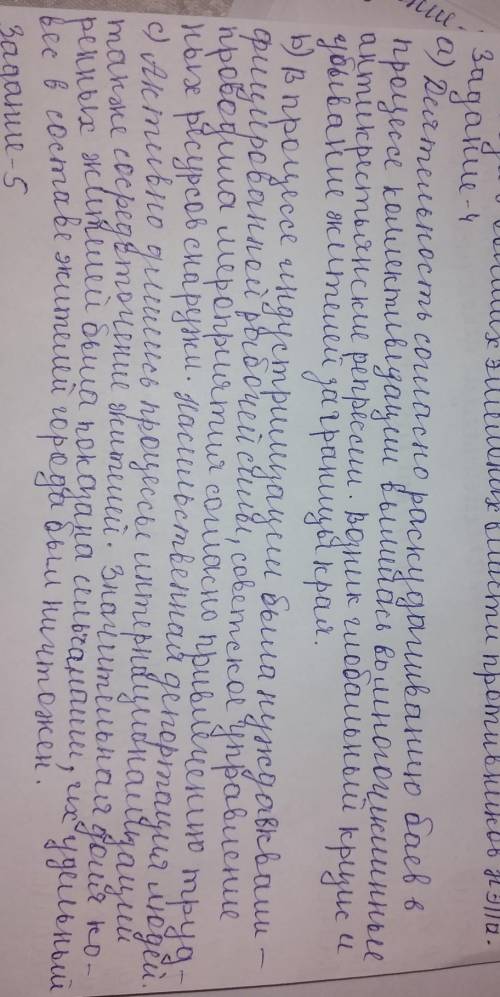 больших эшелонах власти противников НЭПа.
Задание-4
а) Деятельность согласно раскулачиванию баев в
процессе коллективизации вылилась во многочисленные
антикрестьянские репрессии. Возник глобальный кризис и
убывание жителей за границы края.
b) В процессе индустриализации была нужда в квали-
фицированной рабочей силы, советское управление
проводила мероприятия согласно привлечению труда-
ных ресурсов снаружи. Насильственная депортация людей.
с) Активно длились процессы интернационализации
также сосредоточение жителей. Значительная доля ко-
ренных жителей была показана сельчанами, их удельный
вес в составе жителей города был ничтожен.
Задание-5